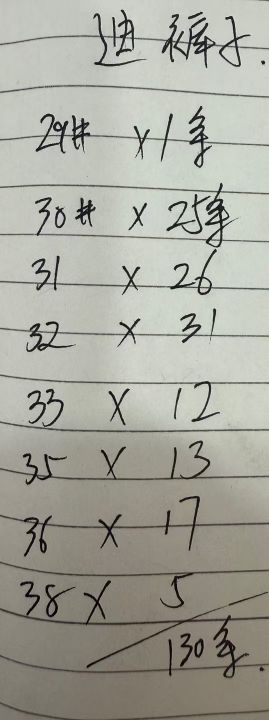 迪裤子.
29# x 1条
30# x 25条
31 x 26
32 x 31
33 x 12
35 x 13
36 x 17
38 x 5
130条.